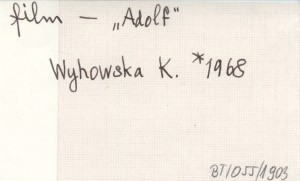 film – „Adolf"
Wyhowska K. *1968
BT/OSS/1903